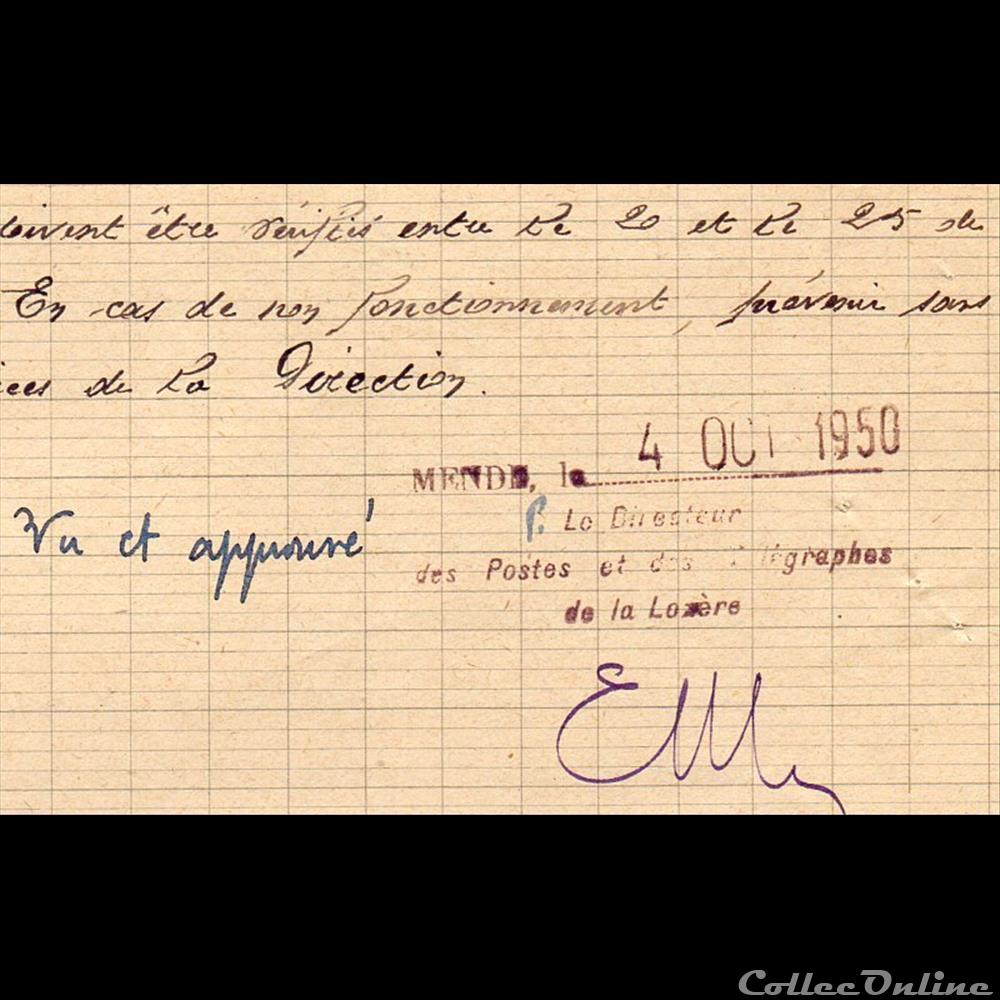 doivent être vérifiés entre le 20 et le 25 de
En cas de non fonctionnement, prévenir sans
ices de la Direction.
4 OCT 1950
MENDE, le
Vu et approuvé
P. Le Directeur
des Postes et des Télégraphes
de la Lozère
CollecOnline